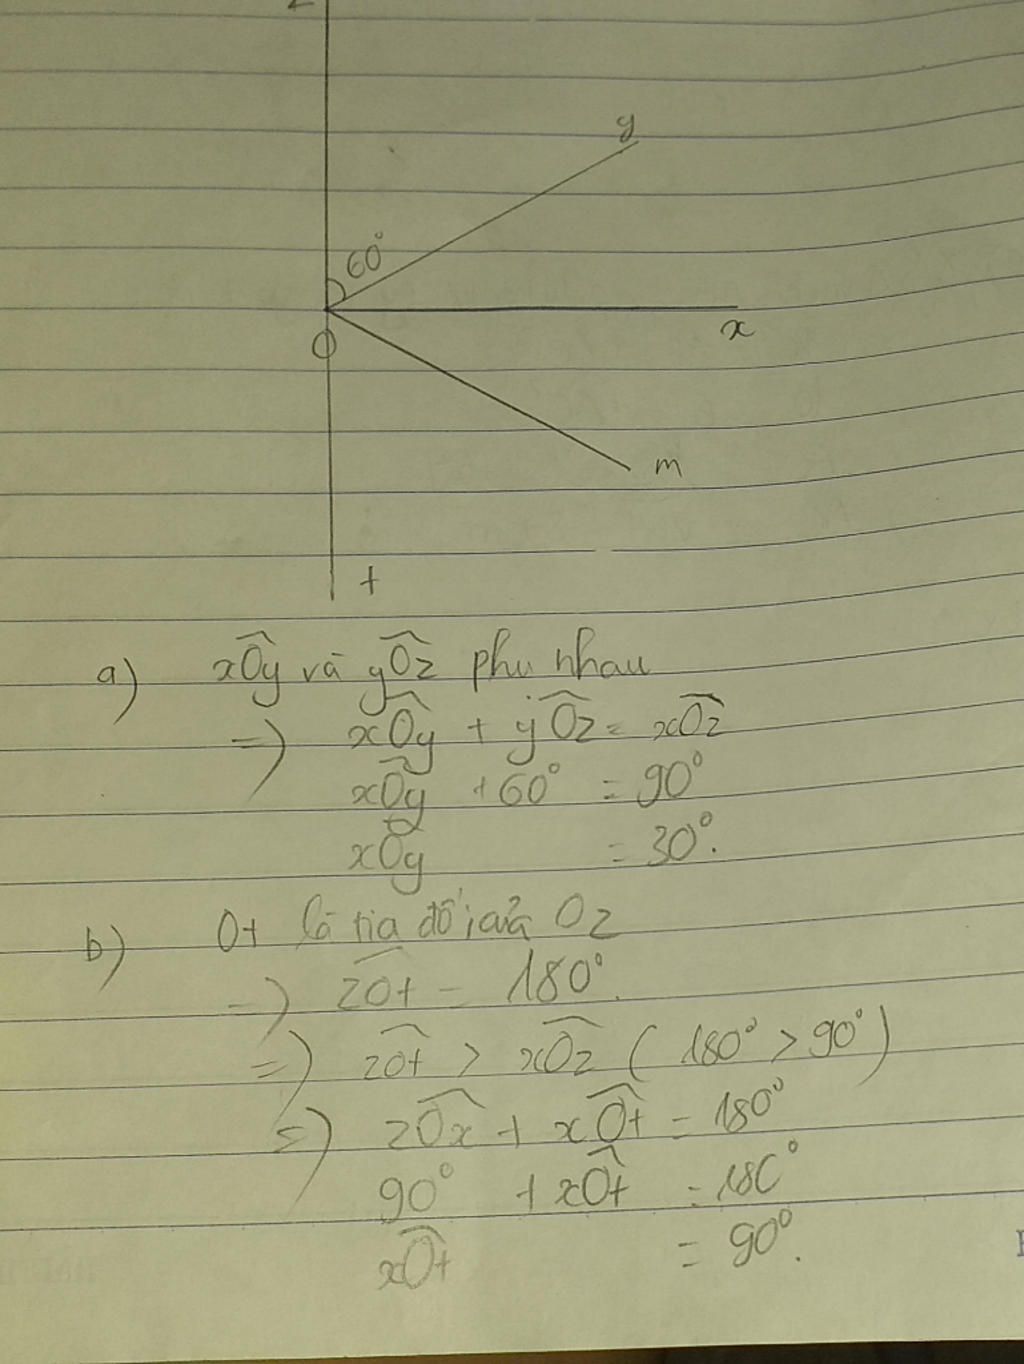 z
y
60°
x
O
m
t
a) xÔy và yÔz phụ nhau
=) xÔy + yÔz = xÔz
xÔy + 60° = 90°
xÔy = 30°.
b) Ot là tia đối của Oz
=) zÔt = 180°.
=) zÔt > xÔz ( 180° > 90° )
=) zÔx + xÔt = 180°
90° + xÔt = 180°
xÔt = 90°.